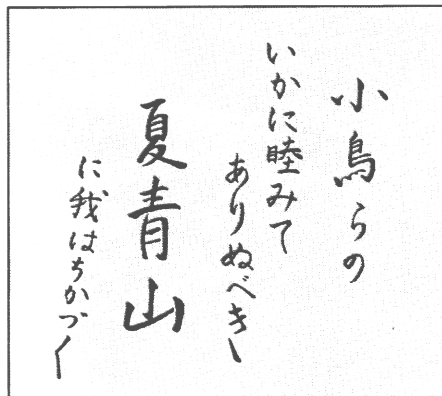 小鳥らの
いかに睦みて
ありぬべき
夏青山
に我はちかづく